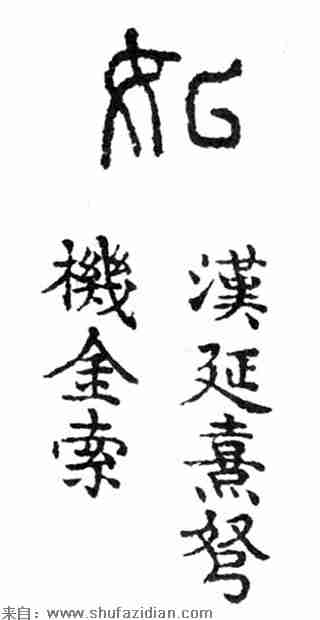 漢延熹弩
機金索
来自：www.shufazidian.com